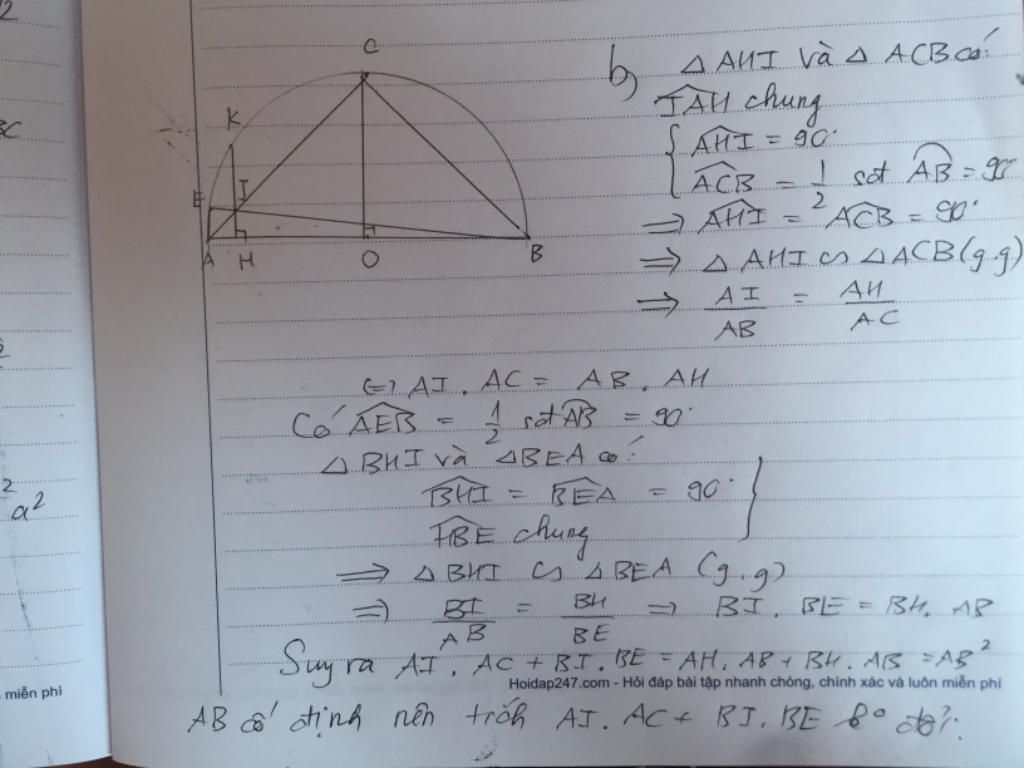 C
K
E
I
A
H
O
B
b) △ AHI và △ ACB có:
IAH chung
AHI = 90°
ACB = 1/2 sđt AB = 90°
=> AHI = ACB = 90°
=> △ AHI ∽ △ ACB (g.g)
=> AI/AB = AH/AC
<=> AI . AC = AB . AH
Có AEB = 1/2 sđt AB = 90°
△ BHI và △ BEA có:
BHI = BEA = 90°
HBE chung
=> △ BHI ∽ △ BEA (g.g)
=> BI/AB = BH/BE => BI . BE = BH . AB
Suy ra AI . AC + BI . BE = AH . AB + BH . AB = AB²
Hoidap247.com - Hỏi đáp bài tập nhanh chóng, chính xác và luôn miễn phí
AB cố định nên AI . AC + BI . BE đổi.
miễn phí
a²